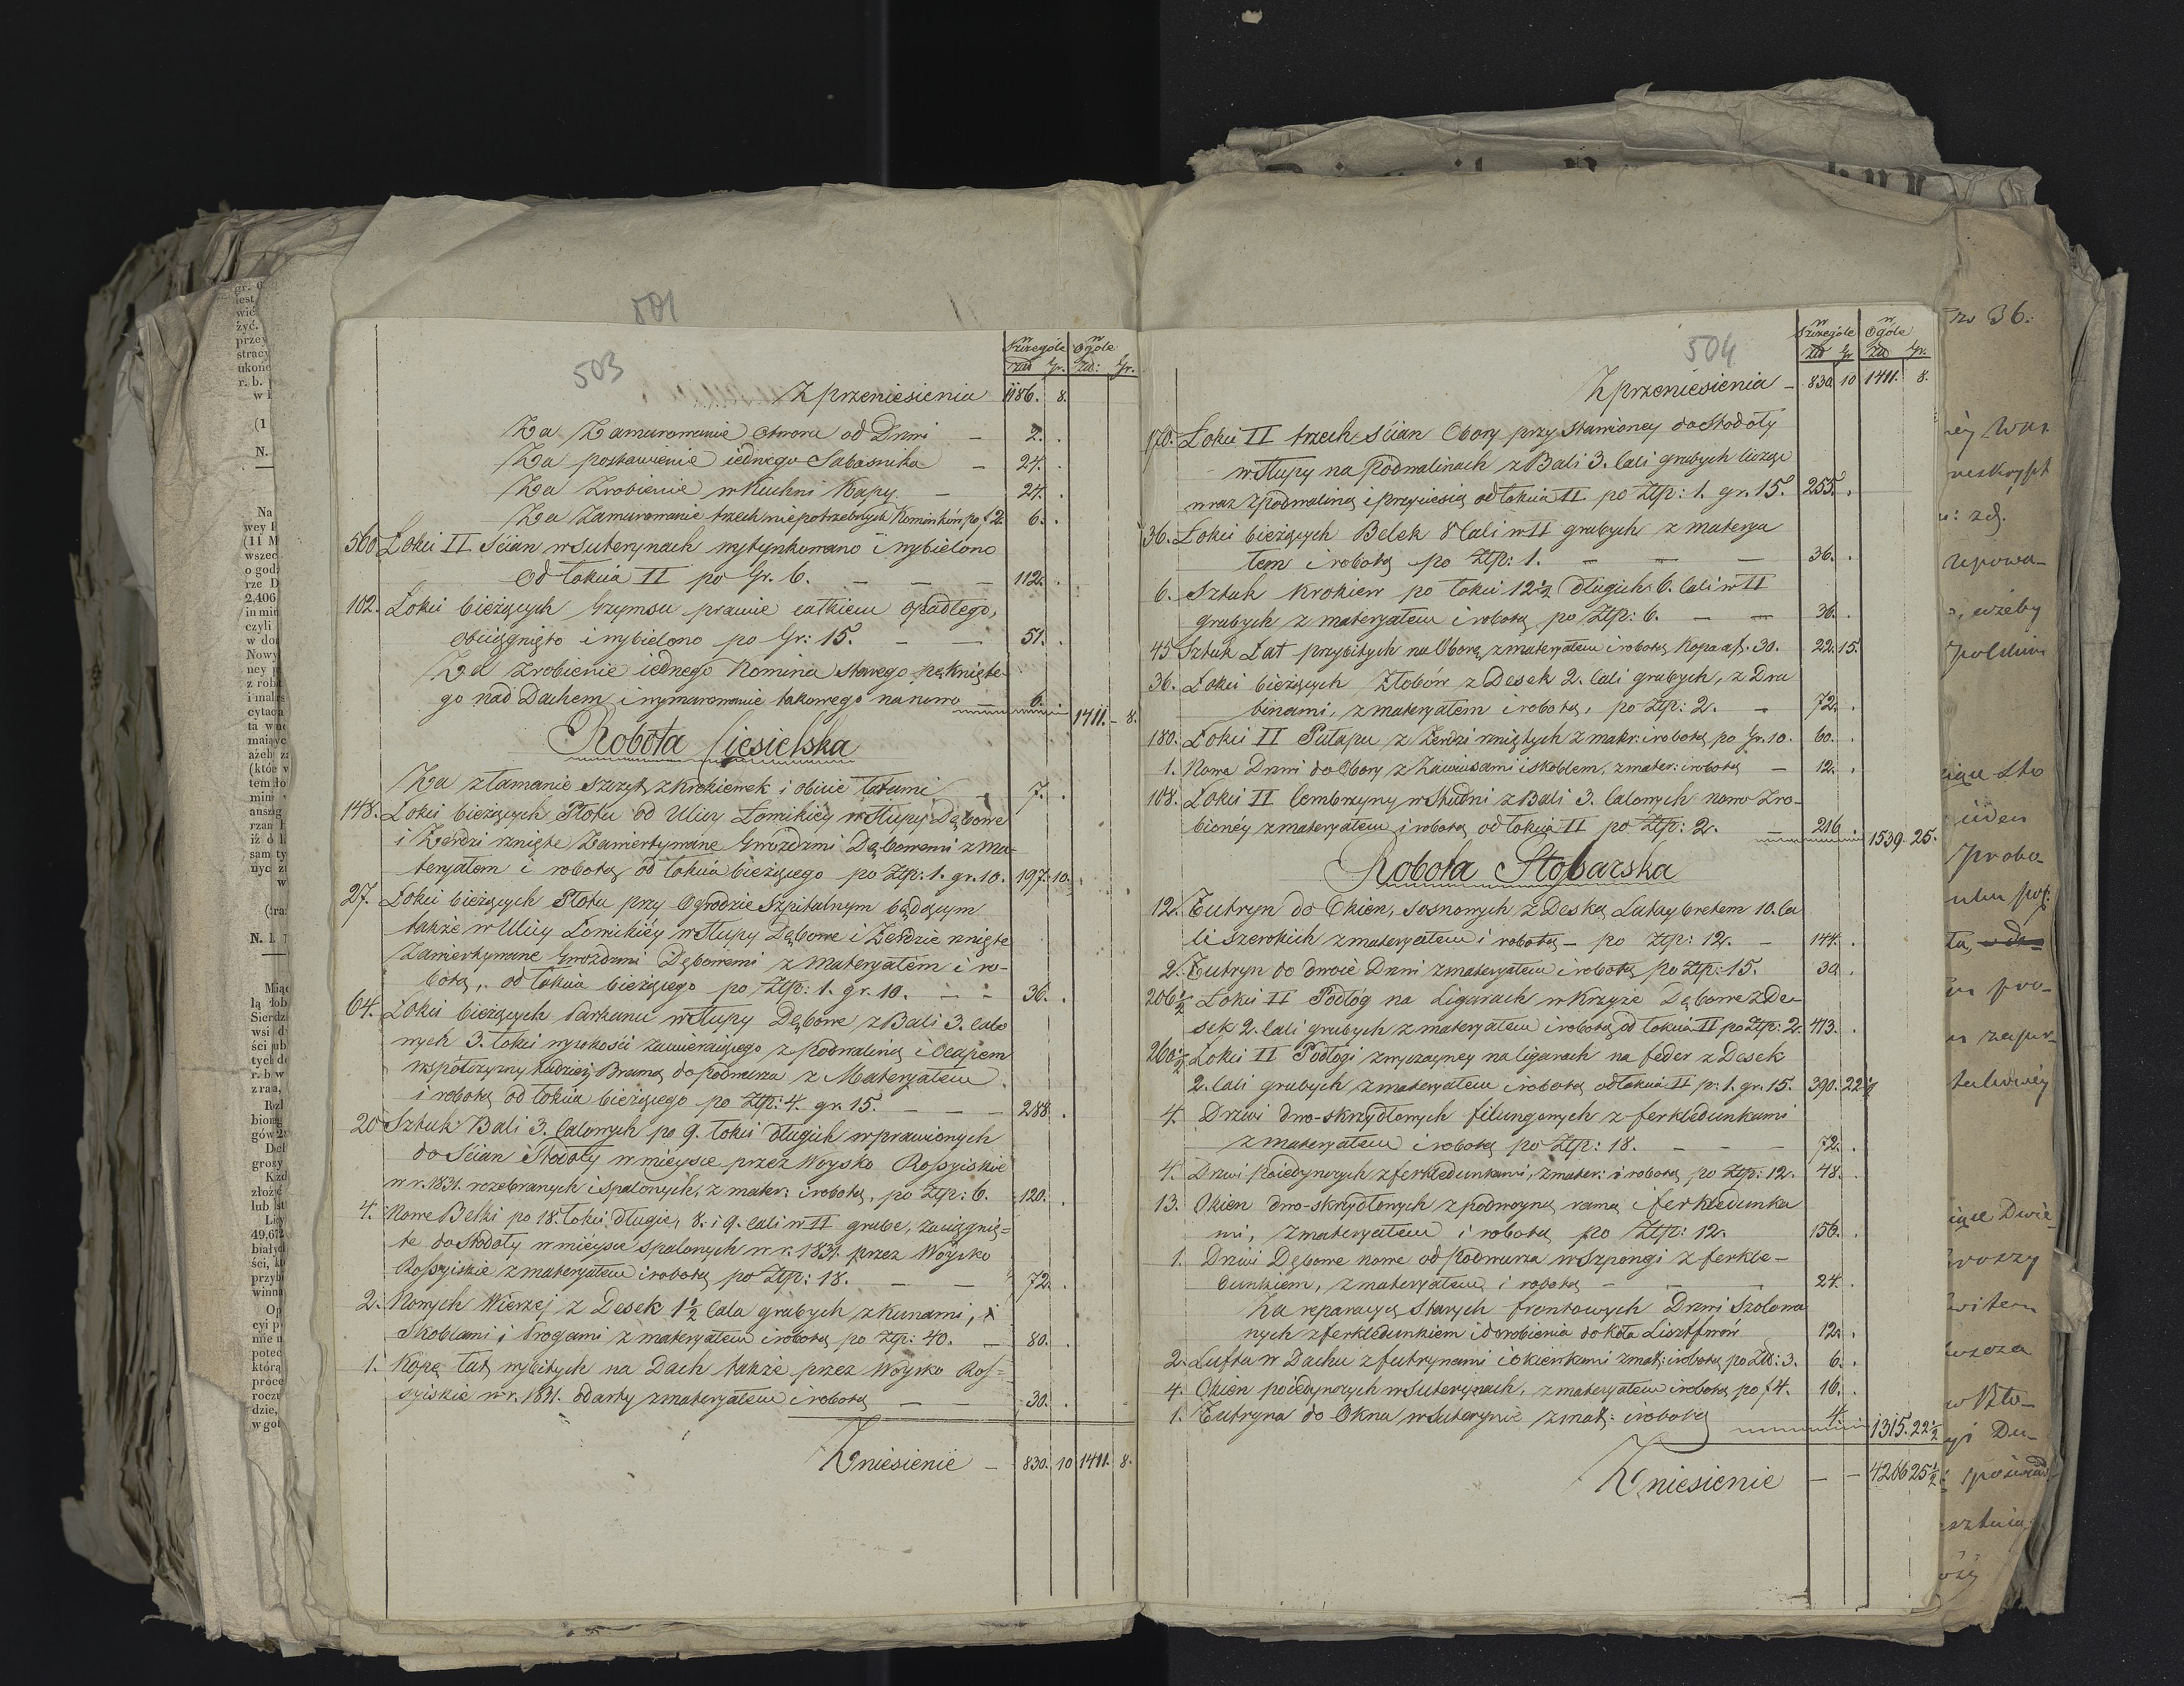 501
503
w Szczególe w Ogóle
Złd Gr. Złd: Gr.
Z przeniesienia 1186. 8.
Za Zamurowanie otworu od Drzwi – 2. .
Za postawienie iednego Sabaśnika – 24. .
Za Zrobienie w Kuchni Kapy. – 24. .
Za Zamurowanie trzech niepotrzebnych Kominków po f 2. 6. .
560 Łokci II Ścian w Suterynach wytynkowano i wybielono
od łokcia II po Gr. 6. – – – 112. .
102. Łokci bieżących Gzymsu prawie całkiem opadłego,
obciągnięto i wybielono po Gr: 15. – – 51. .
Za Zrobienie iednego Komina starego pęknięte-
go nad Dachem i wymurowanie takowego na nowo 6. . 1411. – 8.
Robota Ciesielska
Za złamanie szczytu z krokiewek i obicie łatami – 7. .
148. Łokci bieżących Płotu od Ulicy Łomikiéy w słupy Dębowe
i Żerdzi rznięte Zawiertywane Gwoźdźmi Dębowemi z Ma-
teryałem i robotą od łokcia bieżącego po Złp: 1. gr. 10. 197. 10.
27. Łokci bieżących Płotu przy Ogrodzie Szpitalnym będącym
także w Ulicy Łomikiéy w słupy Dębowe i Żerdzie rznięte
Zawiertywane Gwoźdźmi Dębowemi z Materyałem i ro-
botą, od łokcia bieżącego po Złp: 1. gr. 10. – – 36. .
64. Łokci bieżących Parkanu w słupy Dębowe z Bali 3. calo
wych 3. łokci wysokości zawieraiącego z podwaliną i Ocapem
współczynny tudzież Bramą do podwórza z Materyałem
i robotą od łokcia bieżącego po Złp: 4. gr. 15. – – – 288. .
20 Sztuk Bali 3. Calowych po 9. łokci długich wprawionych
do Ścian Stodoły w mieysce przez Woysko Rossyiskie
w r. 1831. rozebranych i spalonych, z mater: i robotą, po Złp: 6. 120. .
4. Nowe Belki po 18. łokci długie, 8. i 9. cali w II grube, zaciągnię=
te do Stodoły w mieysce spalonych w r. 1831. przez Woysko
Rossyiskie z materyałem i robotą po Złp: 18. – – 72. .
2. Nowych Wierzej z Desek 1½ Cala grubych z kunami, i
Skoblami i Progami z materyałem i robotą po Złp: 40. – 80. .
1. Kopę łat wybitych na Dach także przez Woysko Ros=
syiskie w r. 1831. odarty z materyałem i robotą – 30. .
Zniesienie – 830. 10 1411. 8.
504
w Szczególe w Ogóle
Złd Gr Złd Gr.
Z przeniesienia – 830. 10 1411. 8.
170. Łokci II trzech ścian Obory przystawioney do Stodoły
w słupy na Podwalinach z Bali 3. Cali grubych licząc
wraz z podwaliną i przyciesią od łokcia II po Złp: 1. gr. 15. 255. .
36. Łokci bieżących Belek 8 Cali w II grubych z materya
łem i robotą po Złp: 1. – – – 36. .
6. Sztuk Krokiew po łokci 12½ długich 6. Cali w II
grubych z materyałem i robotą po Złp: 6. – – 36. .
45 Sztuk Łat przybitych na Oborę, z materyałem i robotą Kopa a f. 30. 22. 15.
36. Łokci bieżących Żłobów z Desek 2. Cali grubych, z Dra
binami, z materyałem i robotą, po Złp: 2. – 72. .
180. Łokci II Pułapu z Żerdzi rzniętych z matr: i robotą po Gr. 10. 60. .
1. Nowe Drzwi do Obory z Zawiasami i skoblem, z mater: i robotą – 12. .
108. Łokci II Cembrzyny w Studni z Bali 3. Calowych nowo Zro-
bionéy z materyałem i robotą od łokcia II po Złp: 2. – 216 . 1539. 25.
Robota Stolarska
12. Futryn do Okien, sosnowych z Deską Lataybretem 10. Ca
li szerokich z materyałem i robotą – po Złp: 12. – 144. .
2. Futryn do dwoie Drzwi z materyałem i robotą po Złp: 15. 30 .
206½ Łokci II Podłóg na Ligarach w Krzyże Dębowe z De-
sek 2. Cali grubych z materyałem i robotą od łokcia II po Złp: 2. 413. .
260½ Łokci II Podłogi zwyczayney na ligarach na feder z Desek
2. Cali grubych z materyałem i robotą od łokcia II p: 1. gr. 15. 390. 22½
4. Drzwi dwo-skrzydłowych filungowych z ferkledunkami
z materyałem i robotą po Złp: 18. – – – 72. .
4. Drzwi Poiedynczych z ferkledunkami, z mater: i robotą po Złp: 12. 48. .
13. Okien dwo-skrzydłowych z podwoyną ramą i ferkledunka
mi, z materyałem i robotą po Złp: 12. 156. .
1. Drzwi Dębowe nowe od Podwórza w Szpongi z ferkle-
dunkiem, z materyałem i robotą – – – 24. .
Za reparacyą starych frontowych Drzwi Szalowa
nych z ferkledunkiem i dorobienia do koła Lisztfwów 12. .
2. Lufta w Dachu z futrynami i okienkami z mat: i robotą po Zł: 3. 6. .
4. Okien poiedynczych w Suterynach, z materyałem i robotą po f 4. 16. .
1. Futryna do Okna w Suterynie z mat: i robotą 4. . 1315. 22½
Zniesienie – – 4266 25½